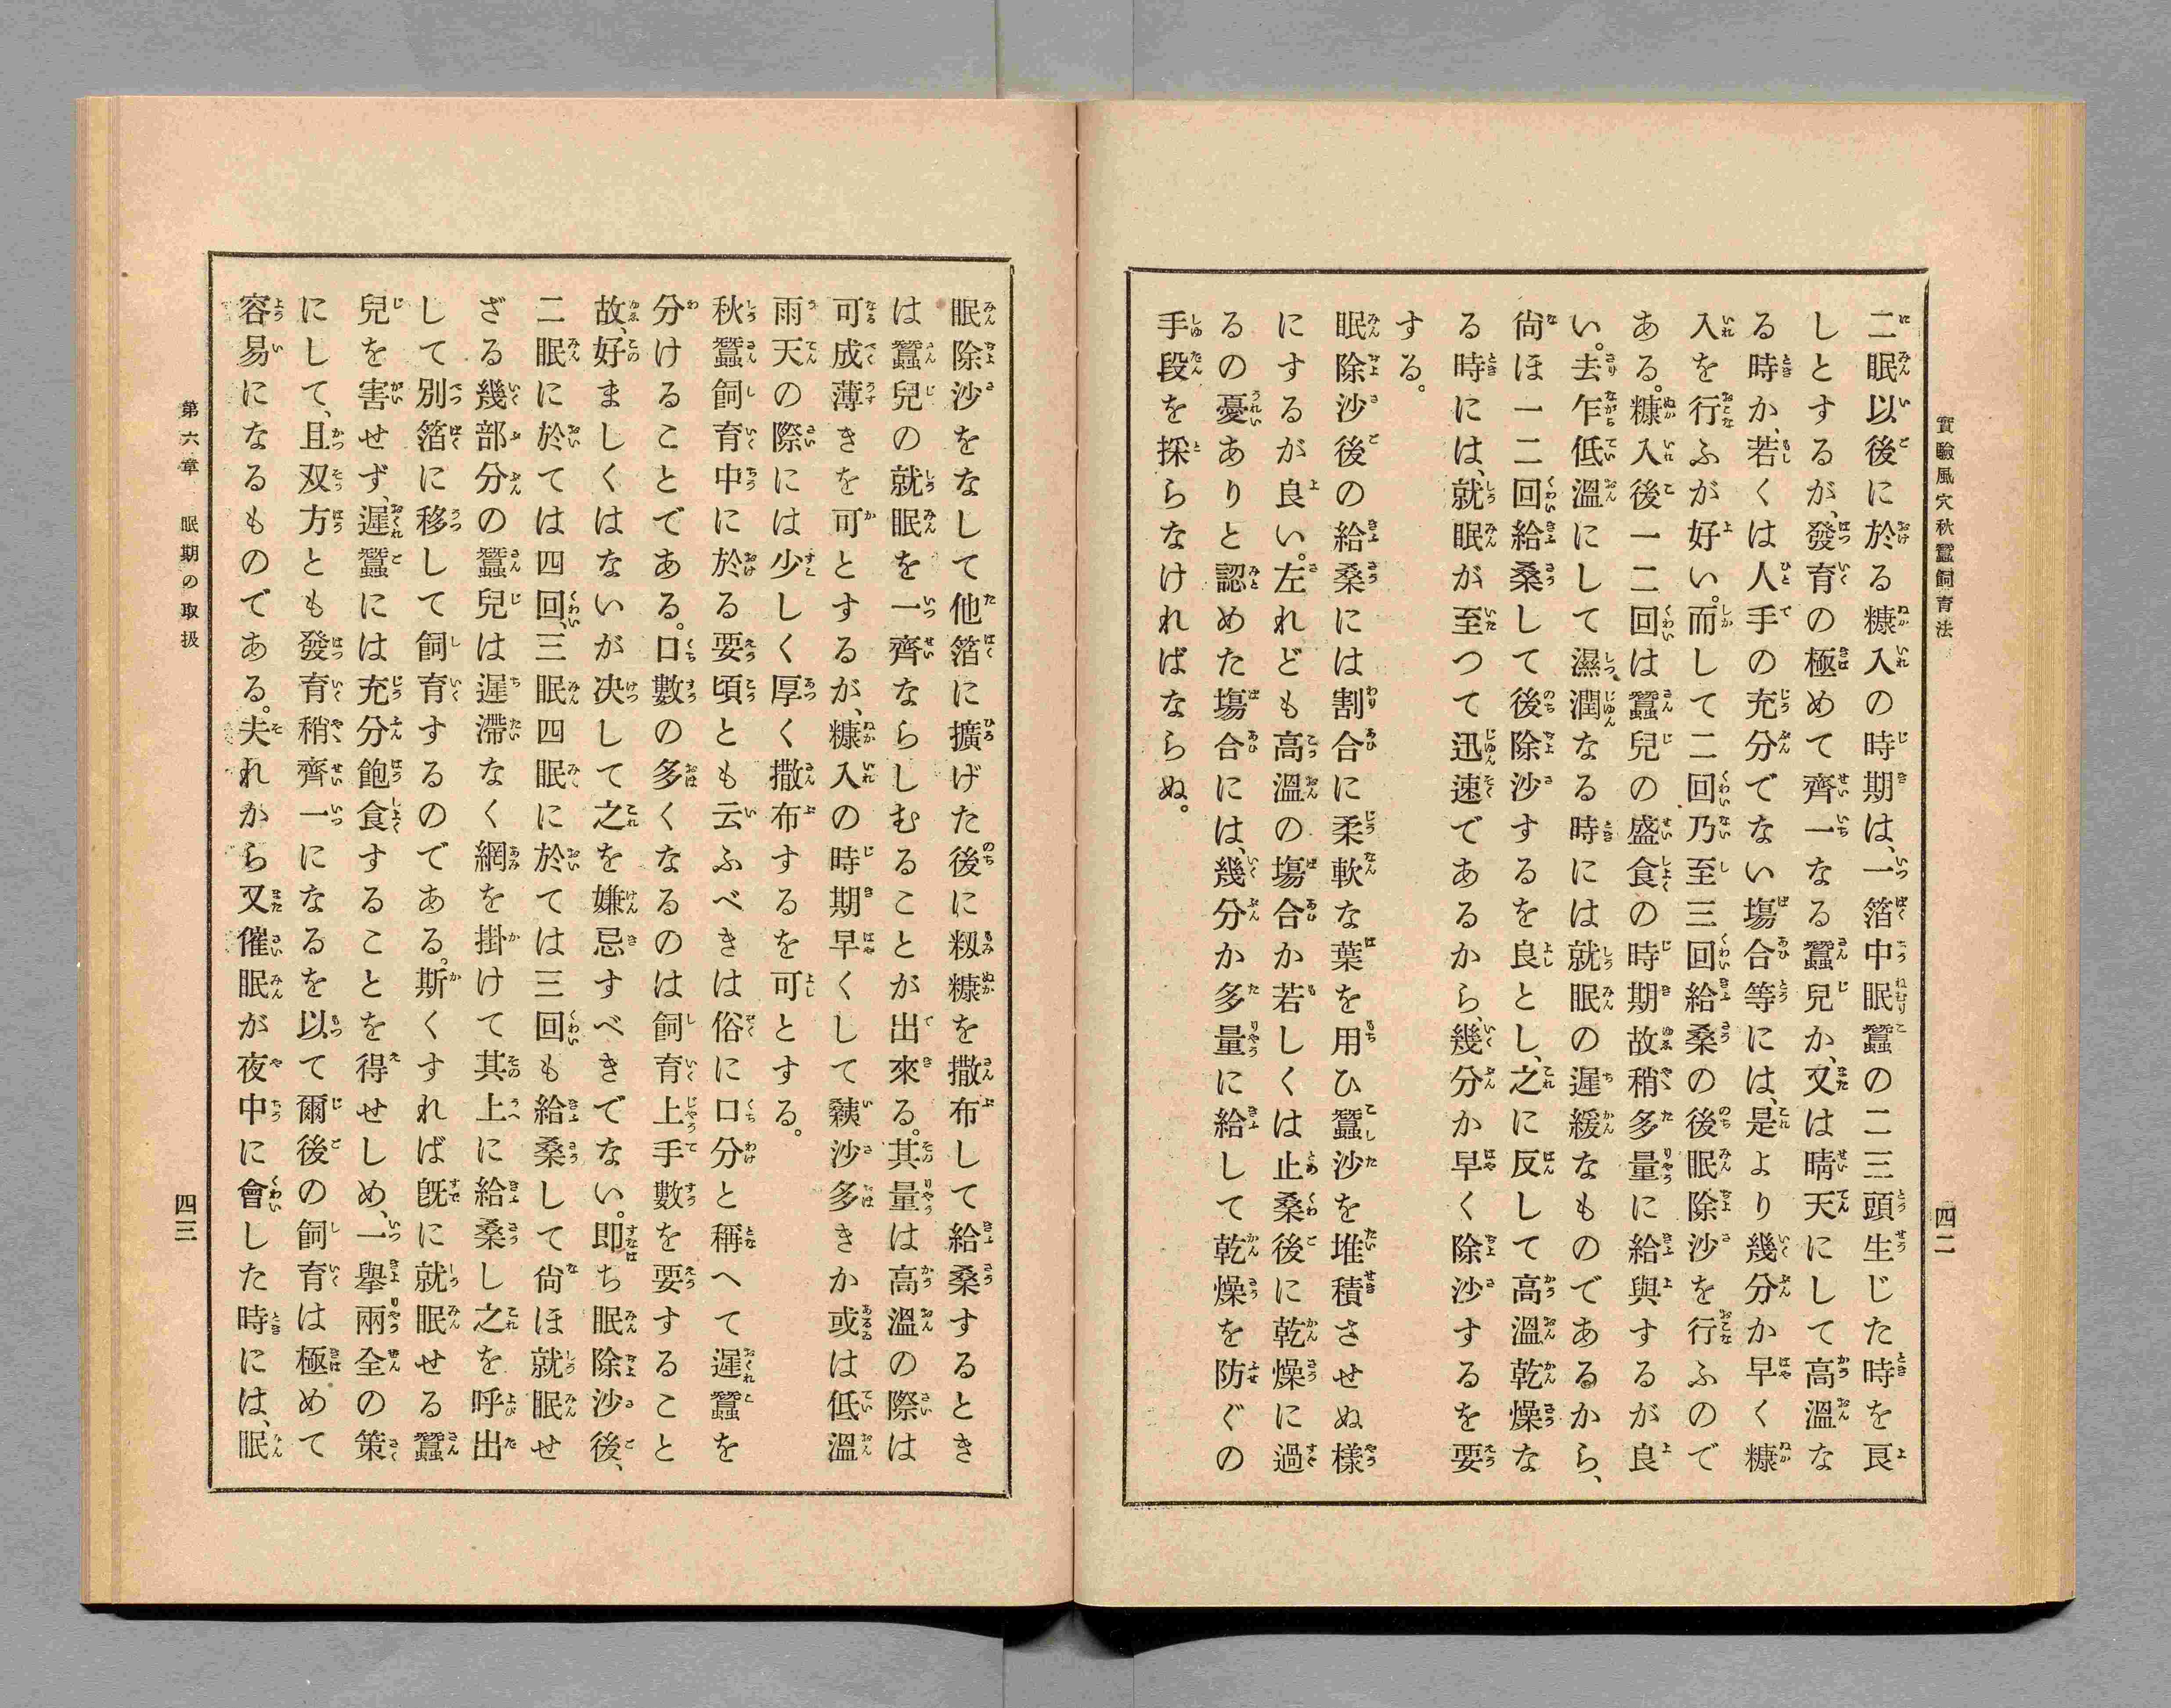 實驗風穴秋蠶飼育法
四二
二眠以後に於る糠入の時期は、一箔中眠蠶の二三頭生じた時を良
しとするが、發育の極めて齊一なる蠶兒か、又は晴天にして高溫な
る時か、若くは人手の充分でない場合等には、是より幾分か早く糠
入を行ふが好い。而して二回乃至三回給桑の後眠除沙を行ふので
ある。糠入後一二回は蠶兒の盛食の時期故稍多量に給與するが良
い。去乍低溫にして濕潤なる時には就眠の遲緩なものであるから、
尙ほ一二回給桑して後除沙するを良とし、之に反して高溫乾燥な
る時には、就眠が至つて迅速であるから、幾分か早く除沙するを要
する。
眠除沙後の給桑には割合に柔軟な葉を用ひ蠶沙を堆積させぬ樣
にするが良い。左れども高溫の塲合か若しくは止桑後に乾燥に過
るの憂ありと認めた塲合には、幾分か多量に給して乾燥を防ぐの
手段を採らなければならぬ。
眠除沙をなして他箔に擴げた後に籾糠を撒布して給桑するとき
は蠶兒の就眠を一齊ならしむることが出來る。其量は高溫の際は
可成薄きを可とするが、糠入の時期早くして糠沙多きか或は低溫
雨天の際には少しく厚く撒布するを可とする。
秋蠶飼育中に於る要頃とも云ふべきは俗に口分と稱へて遲蠶を
分けることである。口數の多くなるのは飼育上手數を要すること
故、好ましくはないが决して之を嫌忌すべきでない。即ち眠除沙後、
二眠に於ては四回、三眠四眠に於ては三回も給桑して尙ほ就眠せ
ざる幾部分の蠶兒は遲滯なく網を掛けて其上に給桑し之を呼出
して別箔に移して飼育するのである。斯くすれば旣に就眠せる蠶
兒を害せず、遲蠶には充分飽食することを得せしめ、一擧兩全の策
にして、且双方とも發育稍齊一になるを以て爾後の飼育は極めて
容易になるものである。夫れから又催眠が夜中に會した時には、眠
第六章　眠期の取扱
四三